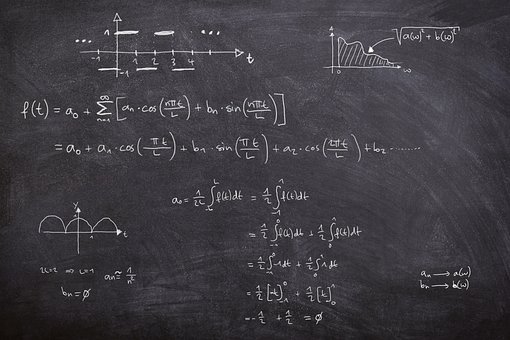 ... ...
-1 1 2 3 4 t
-1
1
0 ω
√(a(ω)² + b(ω)²)
f(t) = a₀ + ∑ₙ₌₁^∞ [aₙ·cos(nπt/L) + bₙ·sin(nπt/L)]
= a₀ + a₁·cos(πt/L) + b₁·sin(πt/L) + a₂·cos(2πt/L) + b₂........
a₀ = 1/2L ∫₋L^L f(t)dt = 1/2 ∫₋₁^1 f(t)dt
= 1/2 ∫₋₁^0 f(t)dt + 1/2 ∫₀^1 f(t)dt
= 1/2 ∫₋₁^0 -1dt + 1/2 ∫₀^1 1dt
= 1/2 [-t]₋₁^0 + 1/2 [t]₀^1
= -1/2 + 1/2 = ∅
y
1 t
2L=2 ⇒ L=1 aₙ ≈ 1/n²
bₙ = ∅
aₙ → a(ω)
bₙ → b(ω)